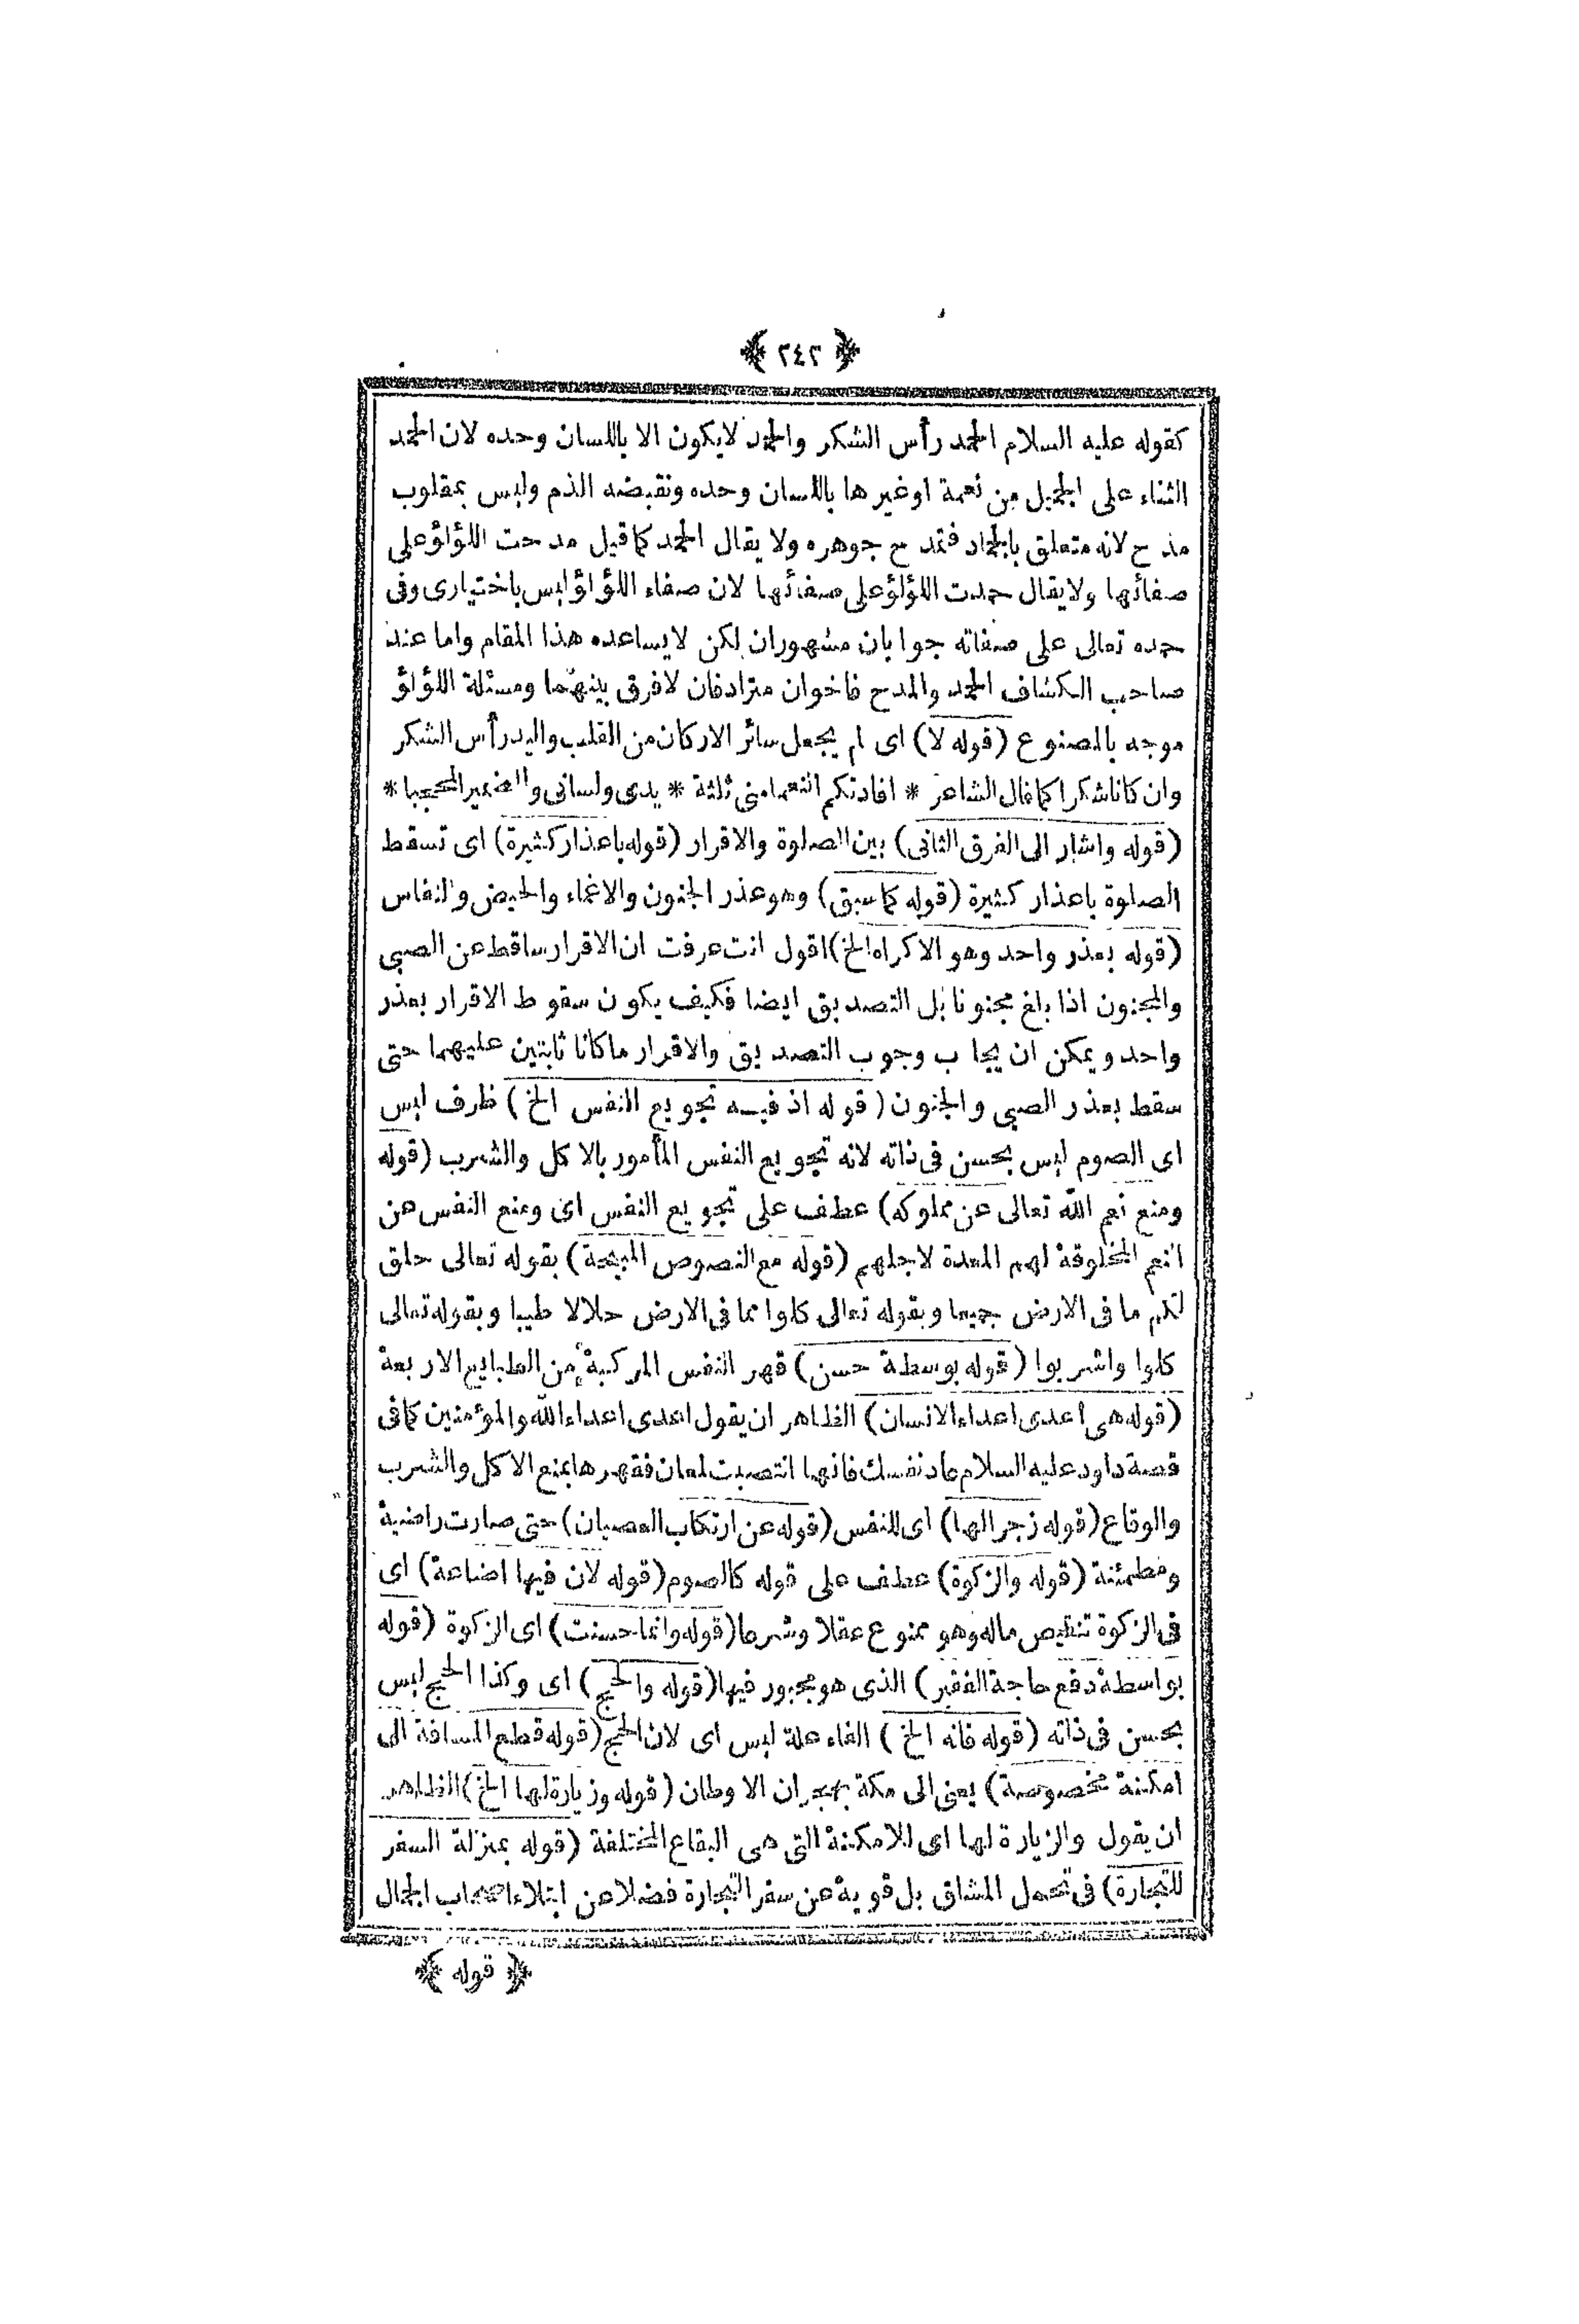 ﴿ ٢٤٢ ﴾
كقوله عليه السلام الحمد رأس الشكر والحمد لايكون الا باللسان وحده لان الحمد
الثناء على الجميل من نعمة اوغيرها باللسان وحده ونقيضه الذم وليس بمقلوب
مدح لانه متعلق بالجماد فتمدح جوهره ولا يقال الحمد كما قيل مدحت اللؤلؤ على
صفائها ولايقال حمدت اللؤلؤ على صفائها لان صفاء اللؤلؤ ليس باختيارى وفى
حمده تعالى على صفاته جوابان مشهوران لكن لايساعده هذا المقام واما عند
صاحب الكشاف الحمد والمدح فاخوان مترادفان لافرق بينهما ومسئلة اللؤلؤ
موجه بالمصنوع (قوله لا) اى لم يجعل سائر الاركان من القلب واليد رأس الشكر
وان كانا شكرا كما قال الشاعر * افادتكم النعماء منى ثلثة * يدى ولسانى والضمير المحجبا *
(قوله واشار الى الفرق الثانى) بين الصلوة والاقرار (قوله باعذار كثيرة) اى تسقط
الصلوة باعذار كثيرة (قوله كما سبق) وهو عذر الجنون والاغماء والحيض والنفاس
(قوله بعذر واحد وهو الاكراه الخ) اقول انت عرفت ان الاقرار ساقط عن الصبى
والمجنون اذا بلغ مجنونا بل التصديق ايضا فكيف يكون سقوط الاقرار بعذر
واحد ويمكن ان يجاب وجوب التصديق والاقرار ماكانا ثابتين عليهما حتى
سقط بعذر الصبى والجنون (قوله اذ فيه تجويع النفس الخ) ظرف ليس
اى الصوم ليس بحسن فى ذاته لانه تجويع النفس المأمور بالاكل والشرب (قوله
ومنع نعم الله تعالى عن مملوكه) عطف على تجويع النفس اى ومنع النفس عن
النعم المخلوقة لهم المعدة لاجلهم (قوله مع النصوص المبيحة) بقوله تعالى خلق
لكم ما فى الارض جميعا وبقوله تعالى كلوا مما فى الارض حلالا طيبا وبقوله تعالى
كلوا واشربوا (قوله بوسطة حسن) قهر النفس المركبة من الطبايع الاربعة
(قوله هى اعدى اعداء الانسان) الظاهر ان يقول اعدى اعداء الله والمؤمنين كما فى
قصة داود عليه السلام عاد نفسك فانها انتصبت لمعان فقهرها بمنع الاكل والشرب
والوقاع (قوله زجرالها) اى للنفس (قوله عن ارتكاب العصيان) حتى صارت راضية
ومطمئنة (قوله والزكوة) عطف على قوله كالصوم (قوله لان فيها اضاعة) اى
فى الزكوة تنقيص ماله وهو ممنوع عقلا وشرعا (قوله وانما حسنت) اى الزكوة (قوله
بواسطة دفع حاجة الفقير) الذى هو مجبور فيها (قوله والحج) اى وكذا الحج ليس
بحسن فى ذاته (قوله فانه الخ) الفاء علة ليس اى لان الحج (قوله قطع المسافة الى
امكنة مخصوصة) يعنى الى مكة بهجران الاوطان (قوله وزيارة لها الخ) الظاهر
ان يقول والزيارة لها اى للامكنة التى هى البقاع المختلفة (قوله بمنزلة السفر
للتجارة) فى تحمل المشاق بل قوية عن سفر التجارة فضلا عن ابتلاء اصحاب الجمال
﴿ قوله ﴾